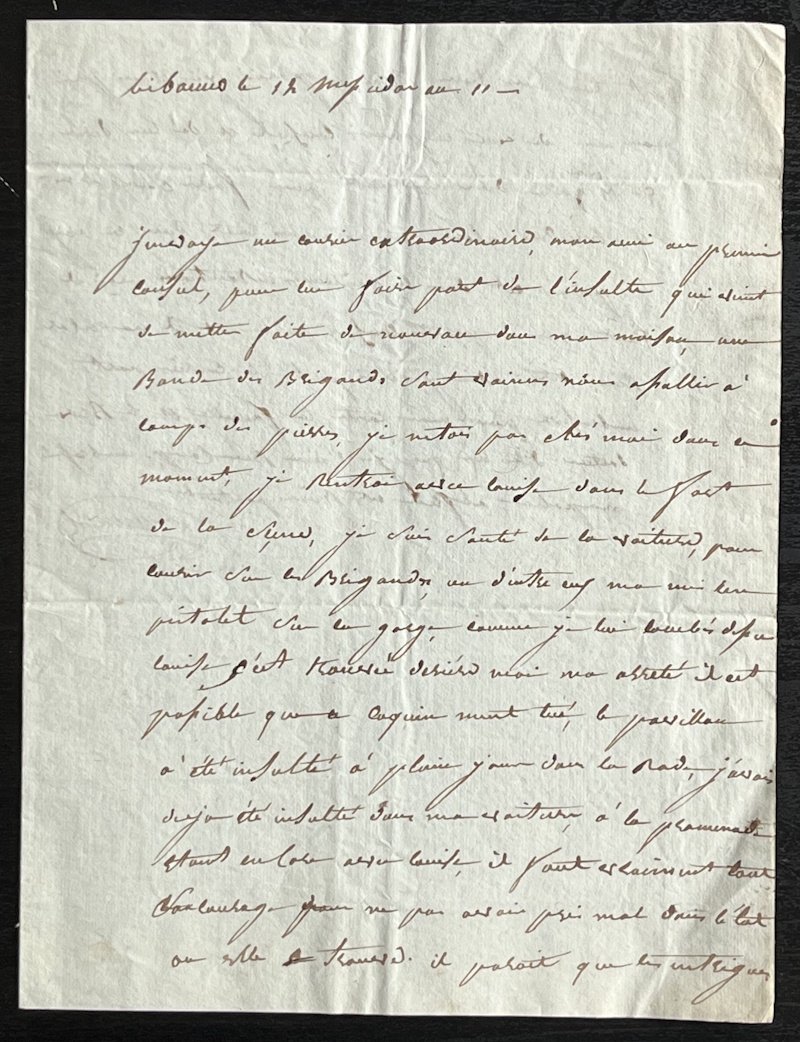 Lisbonne le 12 Messidor an 11 —
J'envoye un courier extraordinaire, mon ami au premier
consul, pour lui faire part de l'insulte qui vient
de mettre faite de nouveau dans ma maison, une
Bande des Brigands sont venus nous assallir à
coups des pierres, je netois pas chés moi dans ce
moment, je Rentroi avec louise dans le fort
de la , je suis sauté de la voiture, pour
courir sur les Brigands, un d'entre eux ma mis le
pistolet sur la gorge, comme je lui
louise s'est trouvé deriere moi ma arreté il est
possible que ce coquin meut tué, le pavillon
a été insulté à pleine jour dans la Rade, j'avais
deja été insulté dans ma voiture, à la promenade
etant encore avec louise, il faut vraiment tout
courage pour ne pas avoir pris mal dans l'état
ou elle se trouve. il paroit que les intrigues